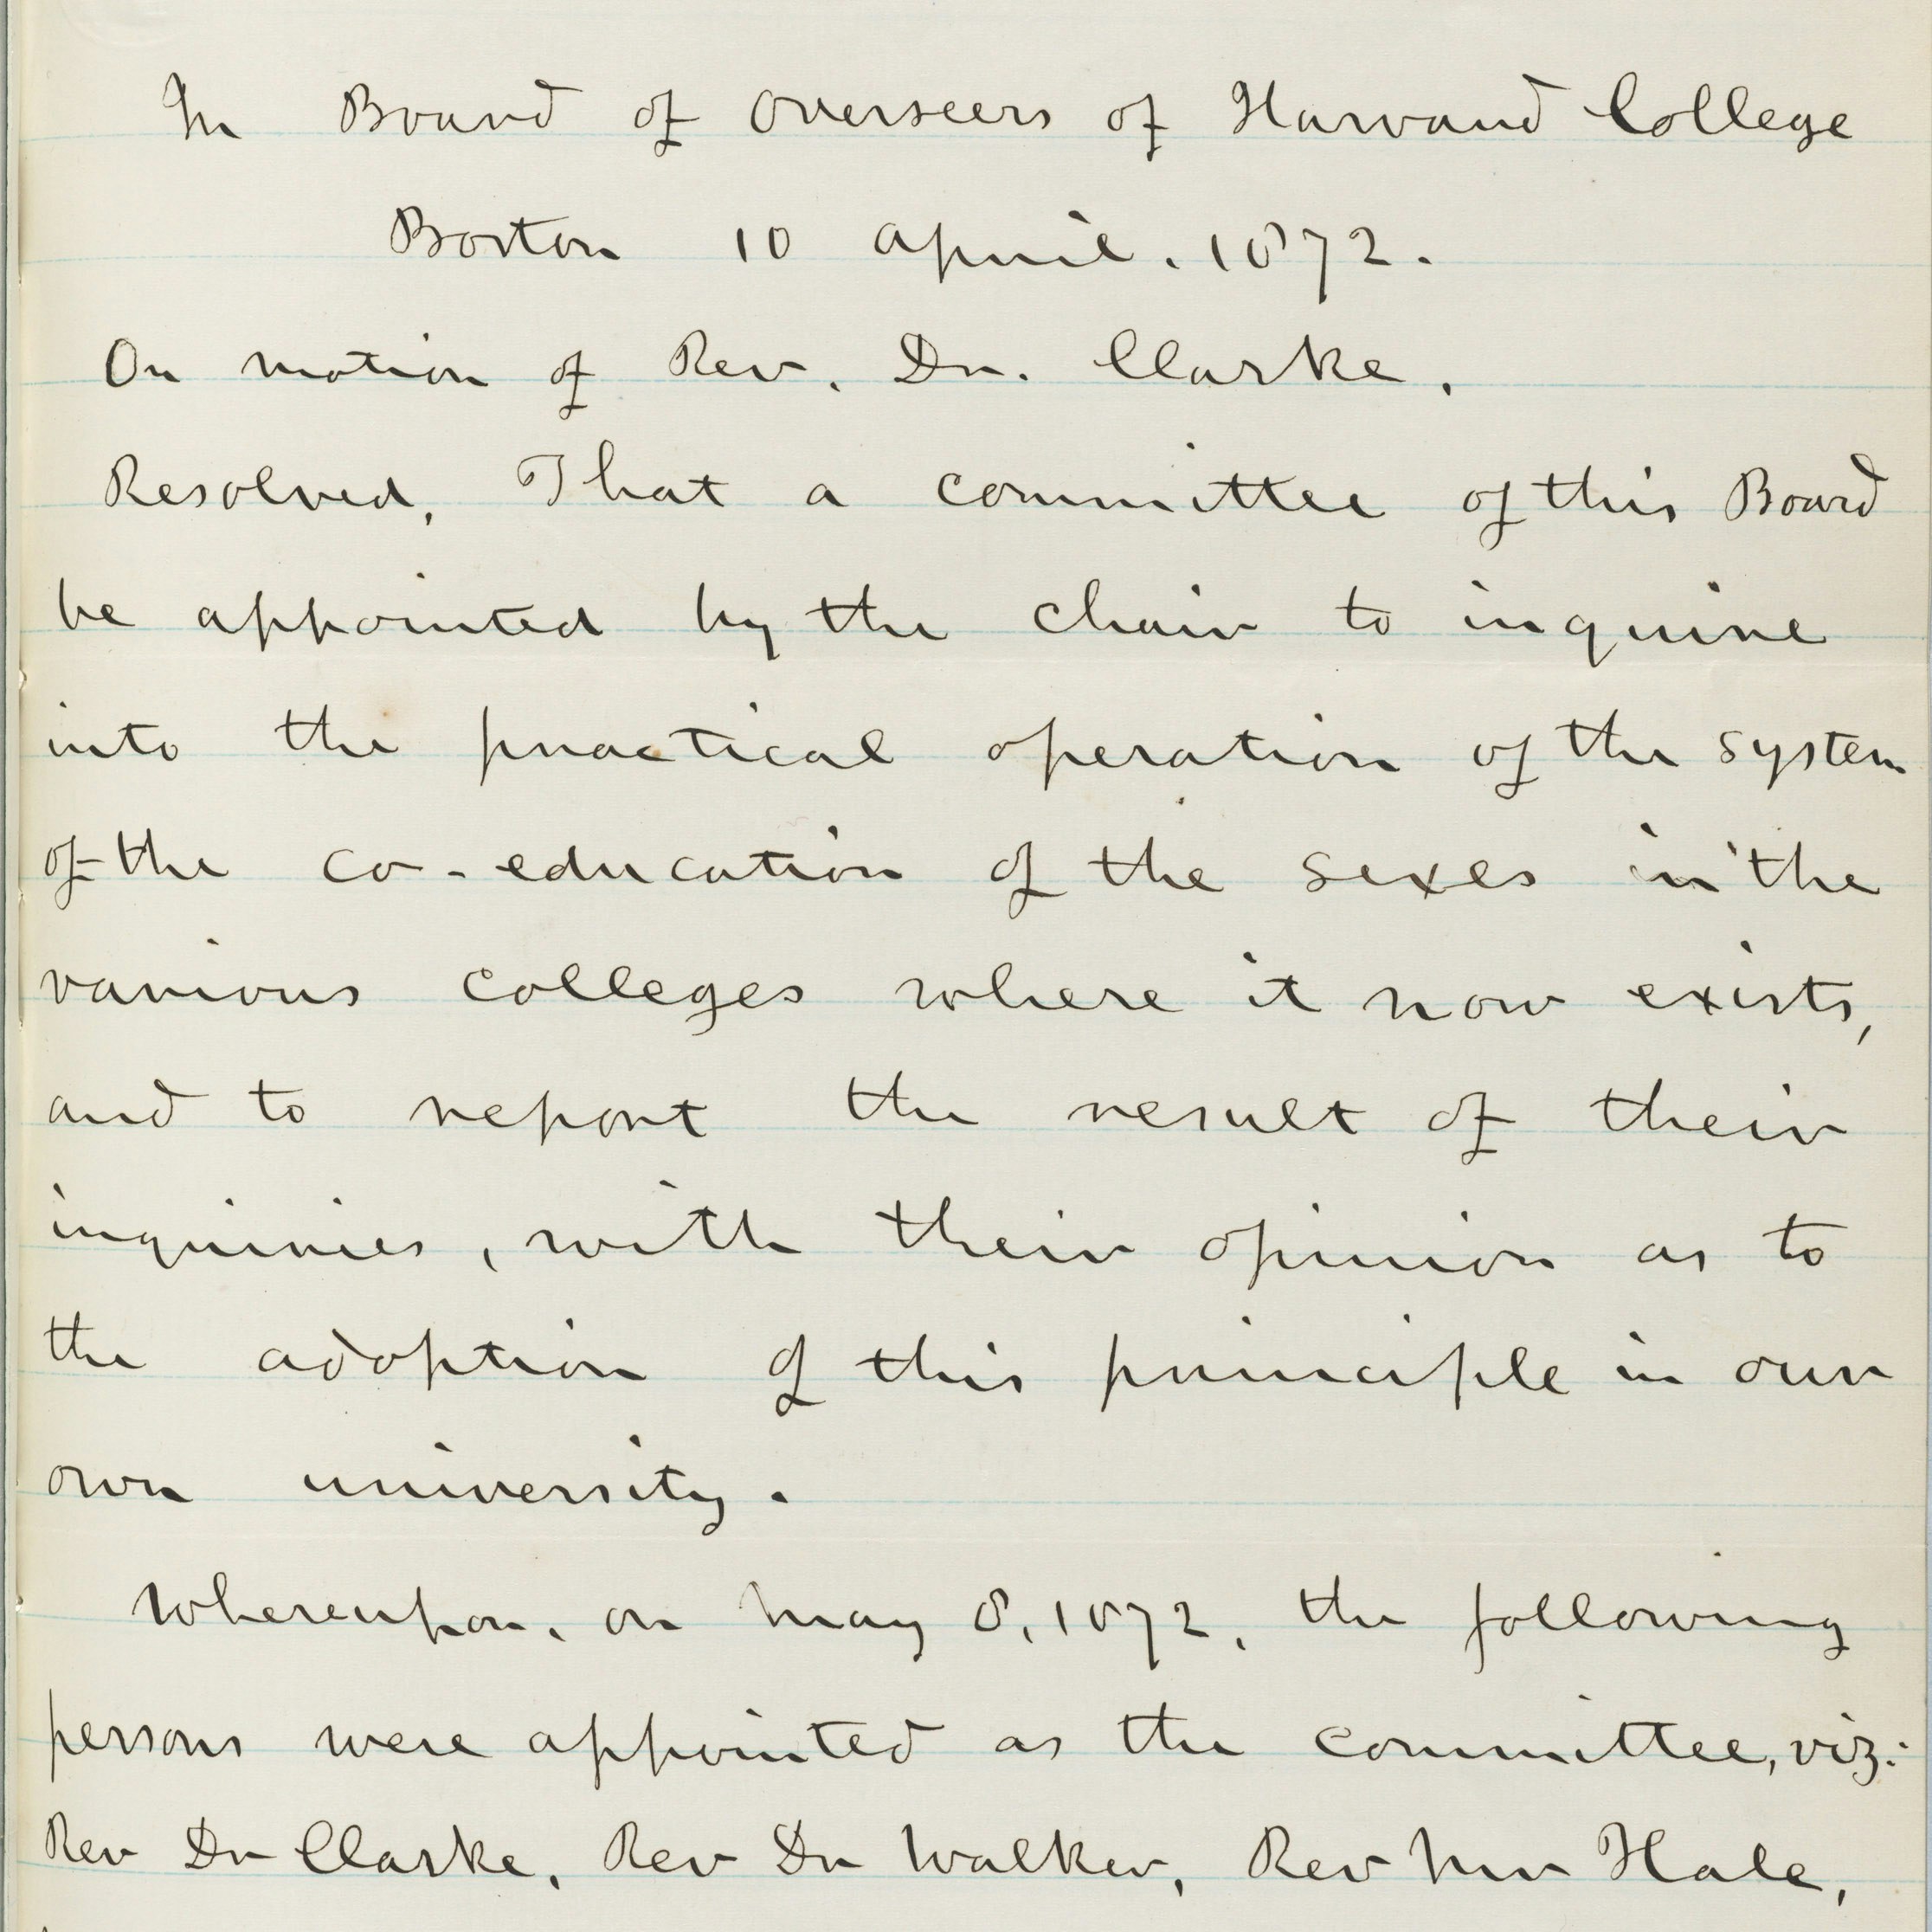 In Board of Overseers of Harvard College
Boston 10 April. 1872.
On motion of Rev. Dr. Clarke,
Resolved, That a committee of this Board
be appointed by the chair to inquire
into the practical operation of the system
of the co-education of the sexes in the
various colleges where it now exists,
and to report the result of their
inquiries, with their opinion as to
the adoption of this principle in our
own university.
Whereupon, on May 8, 1872, the following
persons were appointed as the committee, viz:
Rev Dr Clarke, Rev Dr Walker, Rev Mr Hale,